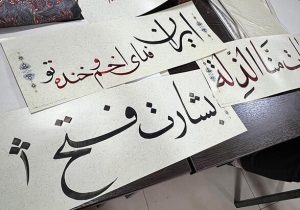 ایران
نمای اخم و خنده تو
هیهات منا الذلة
بشارت فتح